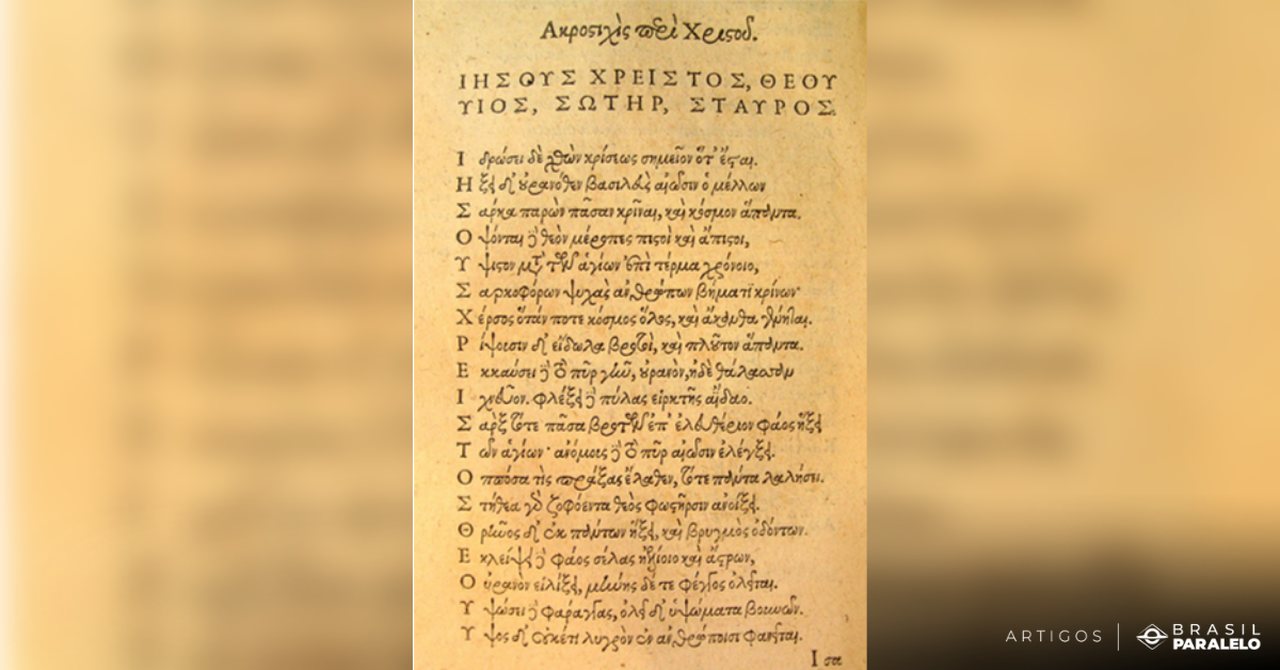 Ακροστιχὶς περὶ Χριστοῦ.
ΙΗΣΟΥΣ ΧΡΕΙΣΤΟΣ, ΘΕΟΥ
ΥΙΟΣ, ΣΩΤΗΡ, ΣΤΑΥΡΟΣ.
Ι δρώσει δὲ χθὼν κρίσεως σημεῖον ὅτ' ἔσται.
Η ξει δ' οὐρανόθεν βασιλεὺς αἰῶσιν ὁ μέλλων
Σ άρκα παρὼν πᾶσαν κρῖναι, καὶ κόσμον ἅπαντα.
Ο ψονται δὲ θεὸν μέροπες πιστοὶ καὶ ἄπιστοι,
Υ ψιστον μετὰ τῶν ἁγίων ἐπὶ τέρμα χρόνοιο,
Σ αρκοφόρων ψυχὰς ἀνθρώπων βήματι κρίνων·
Χ έρσος ὅταν ποτε κόσμος ὅλος, καὶ ἄκανθα γένηται.
Ρ ίψωσιν δ' εἴδωλα βροτοὶ, καὶ πλοῦτον ἅπαντα.
Ε κκαύσει δὲ τὸ πῦρ γῆν, οὐρανὸν, ἠδὲ θάλασσαν
Ι χνεῦον. φλέξει δὲ πύλας εἱρκτῆς ἀΐδαο.
Σ ὰρξ τότε πᾶσα βροτῶν ἐπ' ἐλευθέριον φάος ἥξει
Τ ῶν ἁγίων· ἀνόμοις δὲ τὸ πῦρ αἰῶσιν ἐλέγξει.
Ο ππόσα τὶς πράξας ἔλαθεν, τότε πάντα λαλήσει.
Σ τήθεα γὰρ ζοφόεντα θεὸς φωστῆρσιν ἀνοίξει.
Θ ρῆνος δ' ἐκ πάντων ἥξει, καὶ βρυγμὸς ὀδόντων.
Ε κλείψει δὲ φάος σέλας ἠελίοιο καὶ ἄστρων,
Ο ὐρανὸν εἱλίξει, μήνης δέ τε φέγγος ὀλεῖται.
Υ ψώσει δὲ φάραγγας, ὀλεῖ δ' ὑψώματα βουνῶν.
Υ ψος δ' οὐκέτι λυγρὸν ἐν ἀνθρώποισι φανεῖται.
Ι σα
ARTIGOS | BRASIL PARALELO